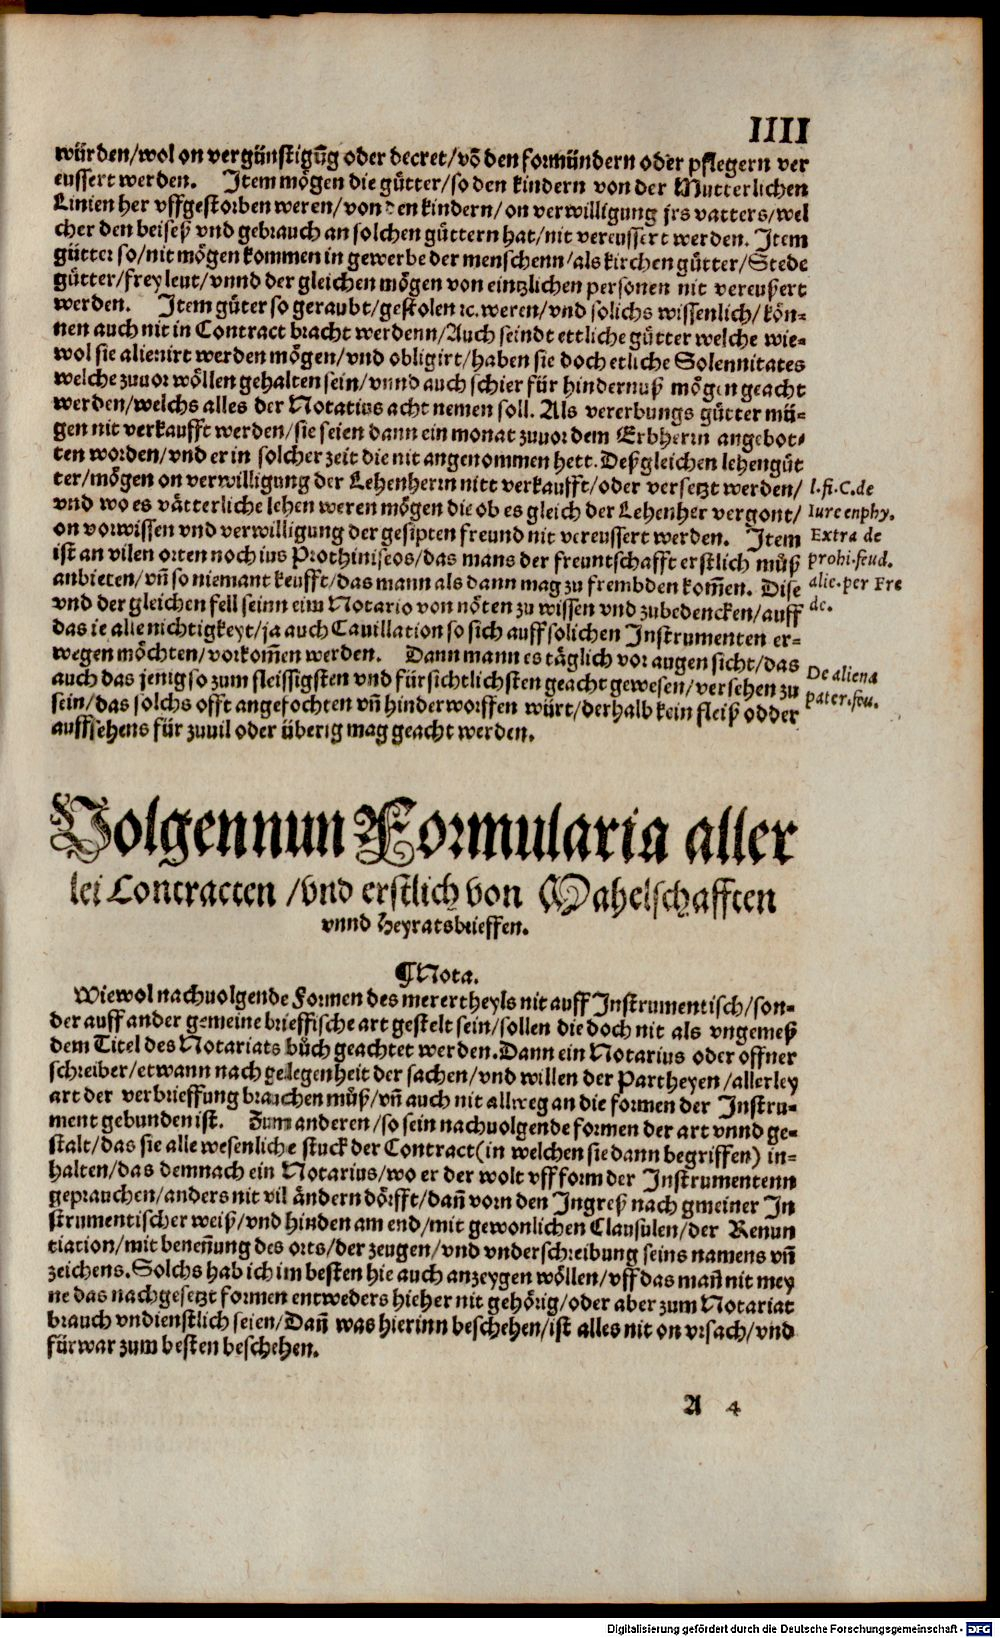 IIII
würden/wol on vergünstigūg oder decret/vō den formündern oder pflegern ver
eussert werden. Item mögen die gütter/so den kindern von der Mutterlichen
Linien her vffgestorben weren/von den kindern/on verwilligung jrs vatters/wel
cher den beiseß vnd gebrauch an solchen güttern hat/nit vereussert werden. Item
gütter so/nit mögen kommen in gewerbe der menschenn/als kirchen gütter/Stede
gütter/frey leut/vnnd der gleichen mögen von eintzlichen personen nit vereußert
werden. Item güter so geraubt/gestolen ꝛc. weren/vnd solichs wissenlich/kön-
nen auch nit in Contract bracht werdenn/Auch seindt ettliche gütter welche wie-
wol sie alienirt werden mögen/vnd obligirt/haben sie doch etliche Solennitates
welche zuuor wöllen gehalten sein/vnnd auch schier für hindernuß mögen geacht
werden/welchs alles der Notatius acht nemen soll. Als vererbungs gütter mü-
gen nit verkaufft werden/sie seien dann ein monat zuuor dem Erbherrn angebot-
ten worden/vnd er in solcher zeit die nit angenommen hett. Deßgleichen lehengüt
ter/mögen on verwilligung der Lehenherrn nitt verkaufft/oder versetzt werden/
vnd wo es vätterliche lehen weren mögen die ob es gleich der Lehenher vergont/
on vorwissen vnd verwilligung der gesipten freund nit vereussert werden. Item
ist an vilen orten noch ius Prothiniseos/das mans der freuntschafft erstlich můß
anbieten/vn̄ so niemant keufft/das mann als dann mag zu frembden kom̄en. Dise
vnd der gleichen fell seinn eim Notario von nöten zu wissen vnd zubedencken/auff
das ie alle nichtigkeyt/ja auch Cauillation so sich auff solichen Instrumenten er-
wegen möchten/vorkom̄en werden. Dann mann es täglich vor augen sicht/das
auch das jenig so zum fleissigsten vnd fürsichtlichsten geacht gewesen/versehen zu
sein/das solchs offt angefochten vn̄ hinderworffen würt/derhalb kein fleiß odder
auffsehens für zuuil oder überig mag geacht werden.
l.fi.C.de
Iure enphy.
Extra de
prohi.feud.
alie.per Fre
de.
De aliena
pater.feu.
Volgen nun Formularia aller
lei Contracten/vnd erstlich von Mahelschafften
vnnd Heyratsbrieffen.
¶Nota.
Wiewol nachuolgende Formen des merertheyls nit auff Instrumentisch/son-
der auff ander gemeine brieffische art gestelt sein/sollen die doch nit als vngemeß
dem Titel des Notariats bůch geachtet werden. Dann ein Notarius oder offner
schreiber/etwann nach gelegenheit der sachen/vnd willen der Partheyen/allerley
art der verbrieffung brauchen můß/vn̄ auch nit allweg an die formen der Instru-
ment gebunden ist. Zum anderen/so sein nachuolgende formen der art vnnd ge-
stalt/das sie alle wesenliche stuck der Contract(in welchen sie dann begriffen) in-
halten/das demnach ein Notarius/wo er der wolt vff form der Instrumentenn
geprauchen/anders nit vil ändern dörfft/dan̄ vorn den Ingreß nach gmeiner In
strumentischer weiß/vnd hinden am end/mit gewonlichen Clausulen/der Renun
tiation/mit benen̄ung des orts/der zeugen/vnd vnderschreibung seins namens vn̄
zeichens. Solchs hab ich im besten hie auch anzeygen wöllen/vff das man̄ nit mey
ne das nachgesetzt formen entweders hieher nit gehörig/oder aber zum Notariat
brauch vndienstlich seien/Dan̄ was hierinn beschehen/ist alles nit on vrsach/vnd
fürwar zum besten beschehen.
A 4
Digitalisierung gefördert durch die Deutsche Forschungsgemeinschaft - DFG